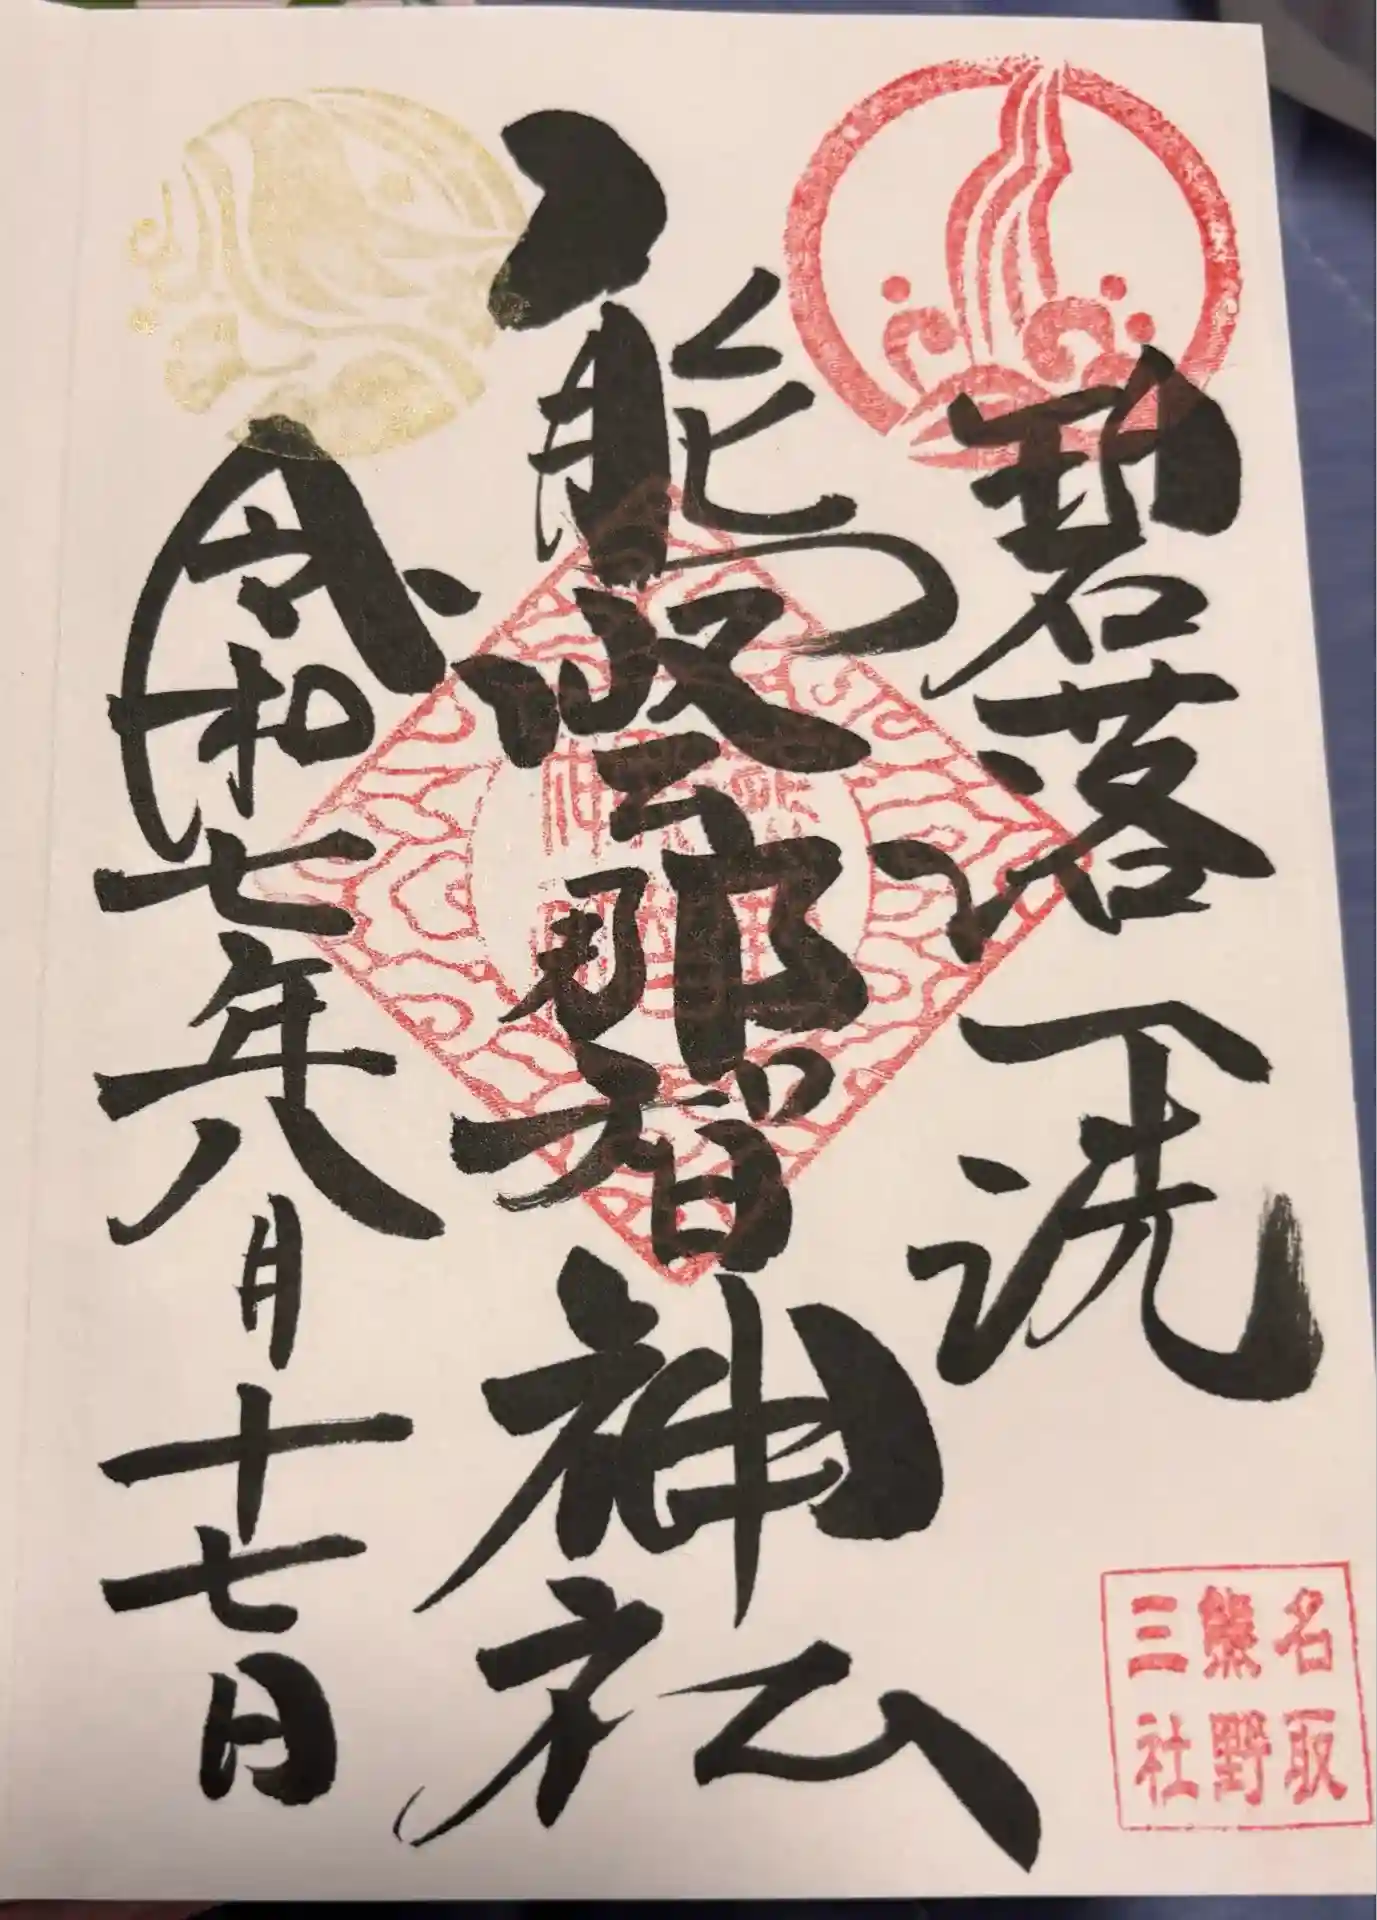 碧落一洗
熊野那智神社
令和七年八月十七日
名取
熊野
三社